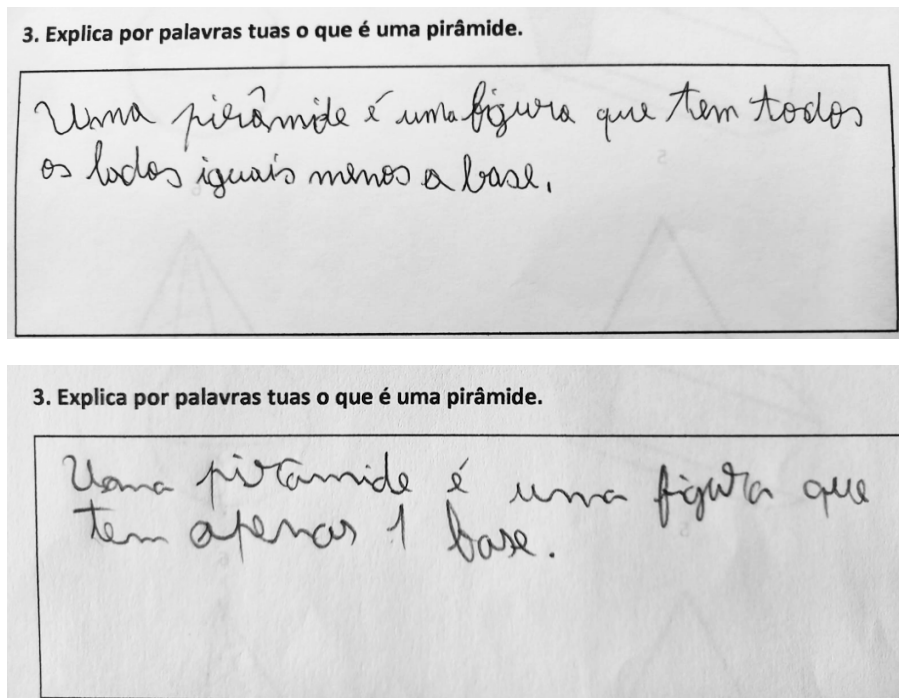 3. Explica por palavras tuas o que é uma pirâmide.
Uma pirâmide é uma figura que tem todos
os lados iguais menos a base.
3. Explica por palavras tuas o que é uma pirâmide.
Uma pirâmide é uma figura que
tem apenas 1 base.